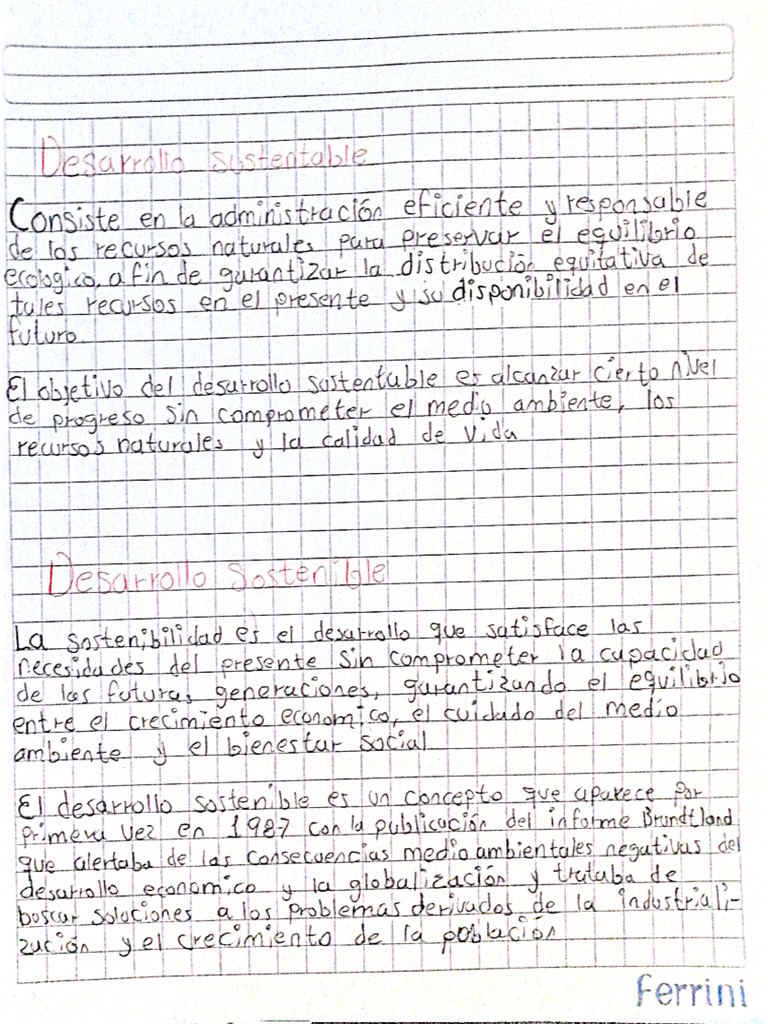 Desarrollo sustentable
Consiste en la administración eficiente y responsable
de los recursos naturales para preservar el equilibrio
ecologico, a fin de garantizar la distribución equitativa de
tales recursos en el presente y su disponibilidad en el
futuro.
El objetivo del desarrollo sustentable es alcanzar cierto nivel
de progreso sin comprometer el medio ambiente, los
recursos naturales y la calidad de vida
Desarrollo Sostenible
La sostenibilidad es el desarrollo que satisface las
necesidades del presente sin comprometer la capacidad
de las futuras generaciones, garantizando el equilibrio
entre el crecimiento economico, el cuidado del medio
ambiente y el bienestar social
El desarrollo sostenible es un concepto que aparece por
primera vez en 1987 con la publicación del informe Brundtland
que alertaba de las consecuencias medio ambientales negativas del
desarrollo economico y la globalización y trataba de
buscar soluciones a los problemas derivados de la industriali-
zación y el crecimiento de la población
Ferrini